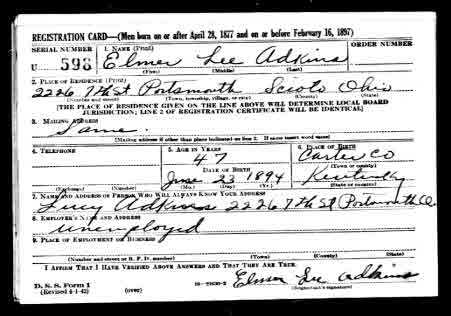 REGISTRATION CARD—(Men born on or after April 28, 1877 and on or before February 16, 1897)
SERIAL NUMBER 1. NAME (Print) ORDER NUMBER
U 598 Elmer Lee Adkins
(First) (Middle) (Last)
2. PLACE OF RESIDENCE (Print)
2226 7th St Portsmouth Scioto Ohio
(Number and street) (Town, township, village, or city) (County) (State)
[THE PLACE OF RESIDENCE GIVEN ON THE LINE ABOVE WILL DETERMINE LOCAL BOARD
JURISDICTION; LINE 2 OF REGISTRATION CERTIFICATE WILL BE IDENTICAL]
3. MAILING ADDRESS
Same.
[Mailing address if other than place indicated on line 2. If same insert word same]
4. TELEPHONE 5. AGE IN YEARS 6. PLACE OF BIRTH
47 Carter Co
DATE OF BIRTH (Town or county)
June 23 1894 Kentucky
(Exchange) (Number) (Mo.) (Day) (Yr.) (State or country)
7. NAME AND ADDRESS OF PERSON WHO WILL ALWAYS KNOW YOUR ADDRESS
Lucy Adkins 2226 7th St Portsmouth O.
8. EMPLOYER'S NAME AND ADDRESS
unemployed
9. PLACE OF EMPLOYMENT OR BUSINESS
(Number and street or R. F. D. number) (Town) (County) (State)
I AFFIRM THAT I HAVE VERIFIED ABOVE ANSWERS AND THAT THEY ARE TRUE.
D. S. S. Form 1 Elmer Lee Adkins
(Revised 4-1-42) (over) (Registrant's signature)